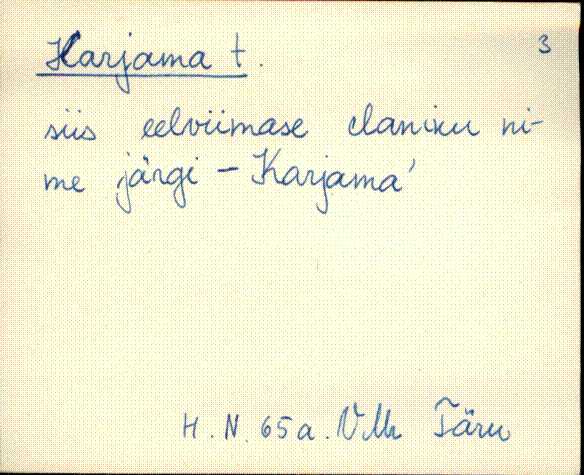 Karjama t. 3
siis eelviimase elaniku ni-
me järgi - Karjama'
H. N. 65 a. Täru